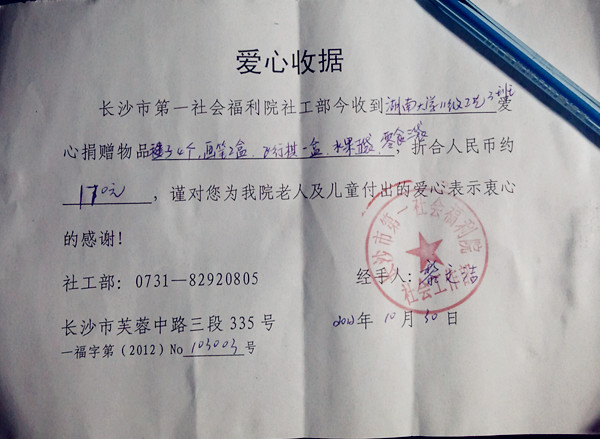 爱心收据
长沙市第一社会福利院社工部今收到湖南大学11级工艺3班爱
心捐赠物品 4个,画笔2盒、飞行棋一盒、水果 袋、零食 袋,折合人民币约
170元,谨对您为我院老人及儿童付出的爱心表示衷心
的感谢!
社工部:0731—82920805 经手人:
长沙市芙蓉中路三段335号 2012年10月30日
一福字第(2012)No 103003号
长沙市第一社会福利院
社会工作部